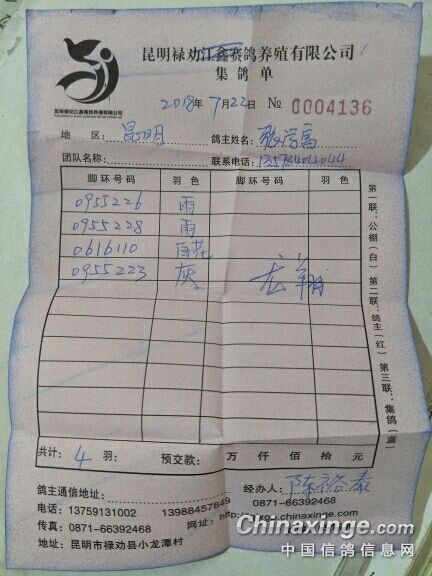 昆明禄劝江鑫赛鸽养殖有限公司
集鸽单
昆明禄劝江鑫赛鸽养殖有限公司
2018年7月22日 № 0004136
地 区: 昆明 鸽主姓名:
团队名称: 联系电话:
脚环号码 羽色 脚环号码 羽色
0955226 雨
0955228 雨
0616110 雨花
0955223 灰 龙翔
共计: 4 羽: 预交款: 万 仟 佰 拾 元
第一联:公棚(白) 第二联:鸽主(红) 第三联:集鸽(蓝)
鸽主通信地址: 经办人: 陈裕泰
电话: 13759131002 13988457849 0871-66392468
传真: 0871-66392468 网址:
地址: 昆明市禄劝县小龙潭村
Chinaxinge.com
中国信鸽信息网